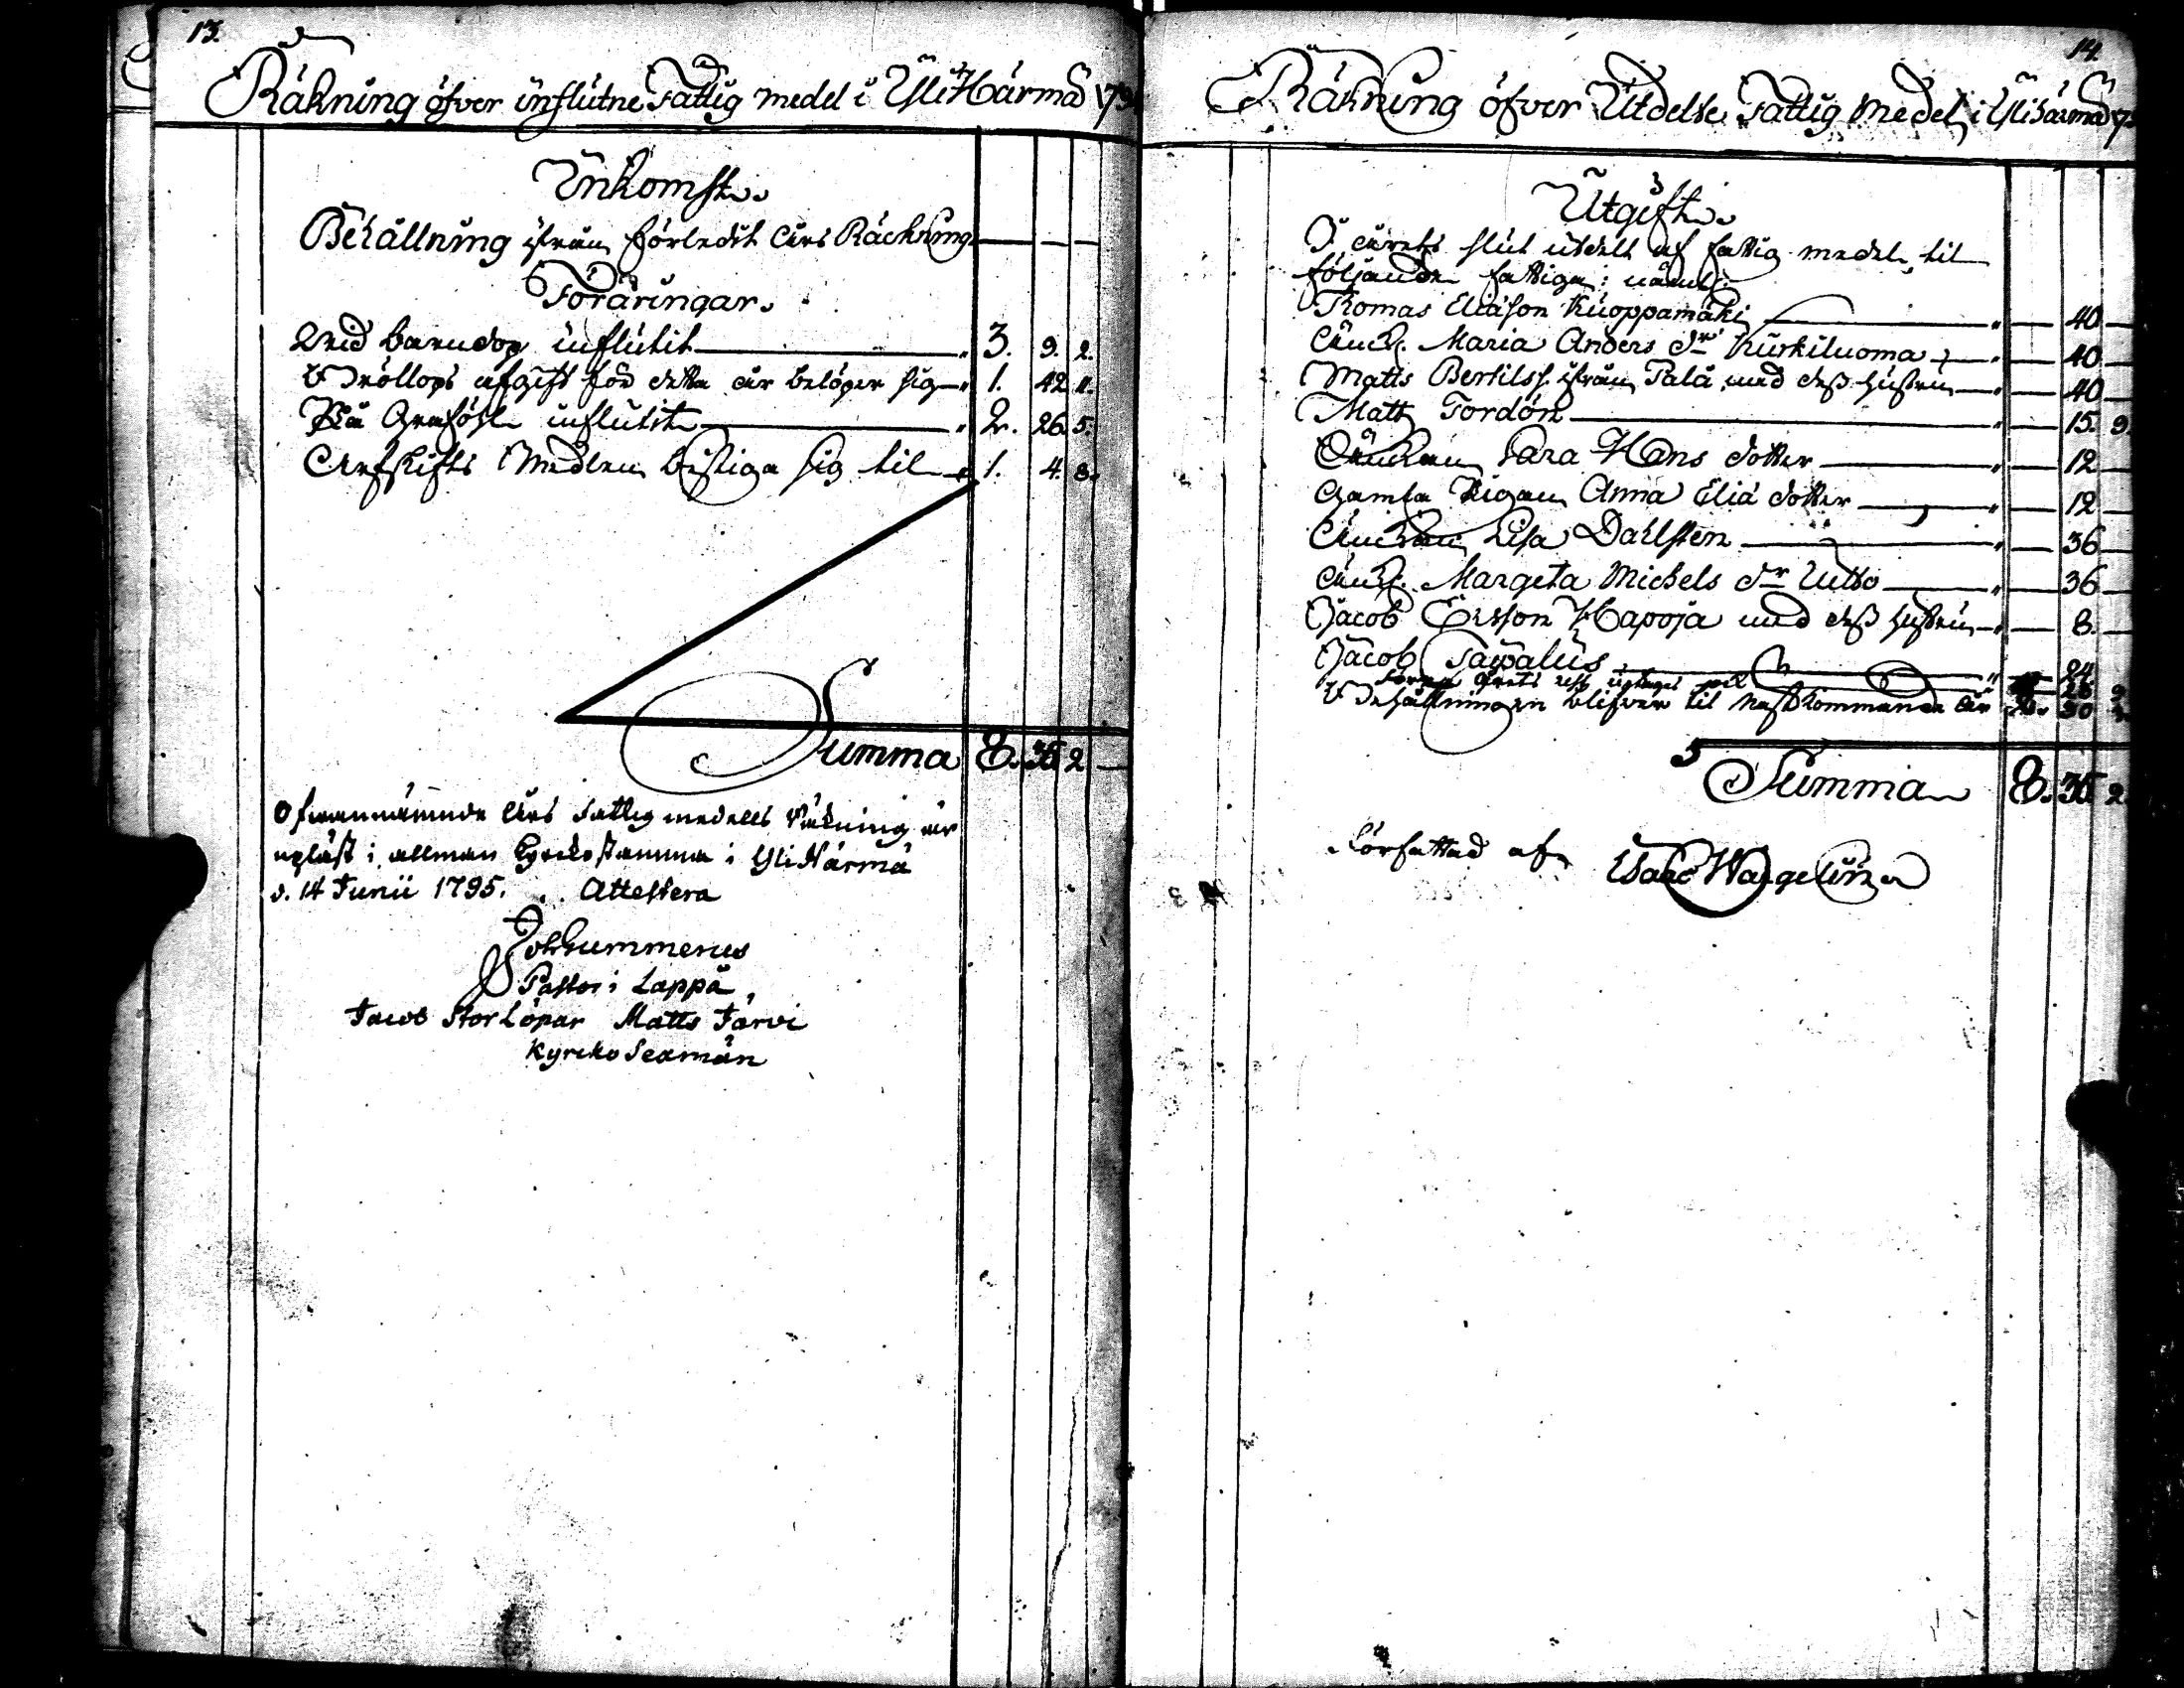 13.
Räkning öfver influtne Fattig medel i Yli Härmä 179
Inkomst.
Behållning ifrån förledit års Räckning — — —
Föräringar.
Vid barndop influtit — " 3. 9. 2.
Bröllops afgift för detta år belöper sig — " 1. 42. 11.
På Graföhl influtit — " 2. 26. 5.
Arfskifts Medlen bestiga sig til — " 1. 4. 8.
Summa 8. 35 2 —
Ofvannämnde års Fattig medels räkning är
upläst i allman Kyrckostämma i Yli Härmä
d. 14 Junii 1795. Attestera
Joh Gummerus
Pastor i Lappå,
Jacob Storlöpar Matts Järvi
Kyrcko Sexmän
14.
Räkning öfver Utdelte Fattig Medel i Yli Härmä 179
Utgift.
I årets slut utdelt af fattig medel, til
följande fattiga: näml:
Thomas Eliason Kuoppamäki — " — 40 —
Änck. Maria Anders dr Kurkiluoma — " — 40 —
Matts Bertilss. ifrån Pala med dess hustru — " — 40 —
Matt Tordön — " — 15. 9.
Änckan Sara Hans dotter — " — 12 —
Gamla Pigan Anna Elia dotter — " — 12 —
Änckan Lisa Dahlsten — " — 36 —
Änck. Margeta Michels dr Uitto — " — 36 —
Jacob Ersson Hapoja med dess hustru — " — 8. —
Jacob Saipalus — " — 24
Förra årets rest
Behållningen blifver til nästkommande år 30
Summa 8. 35. 2.
Författad af Isaac Wargelin